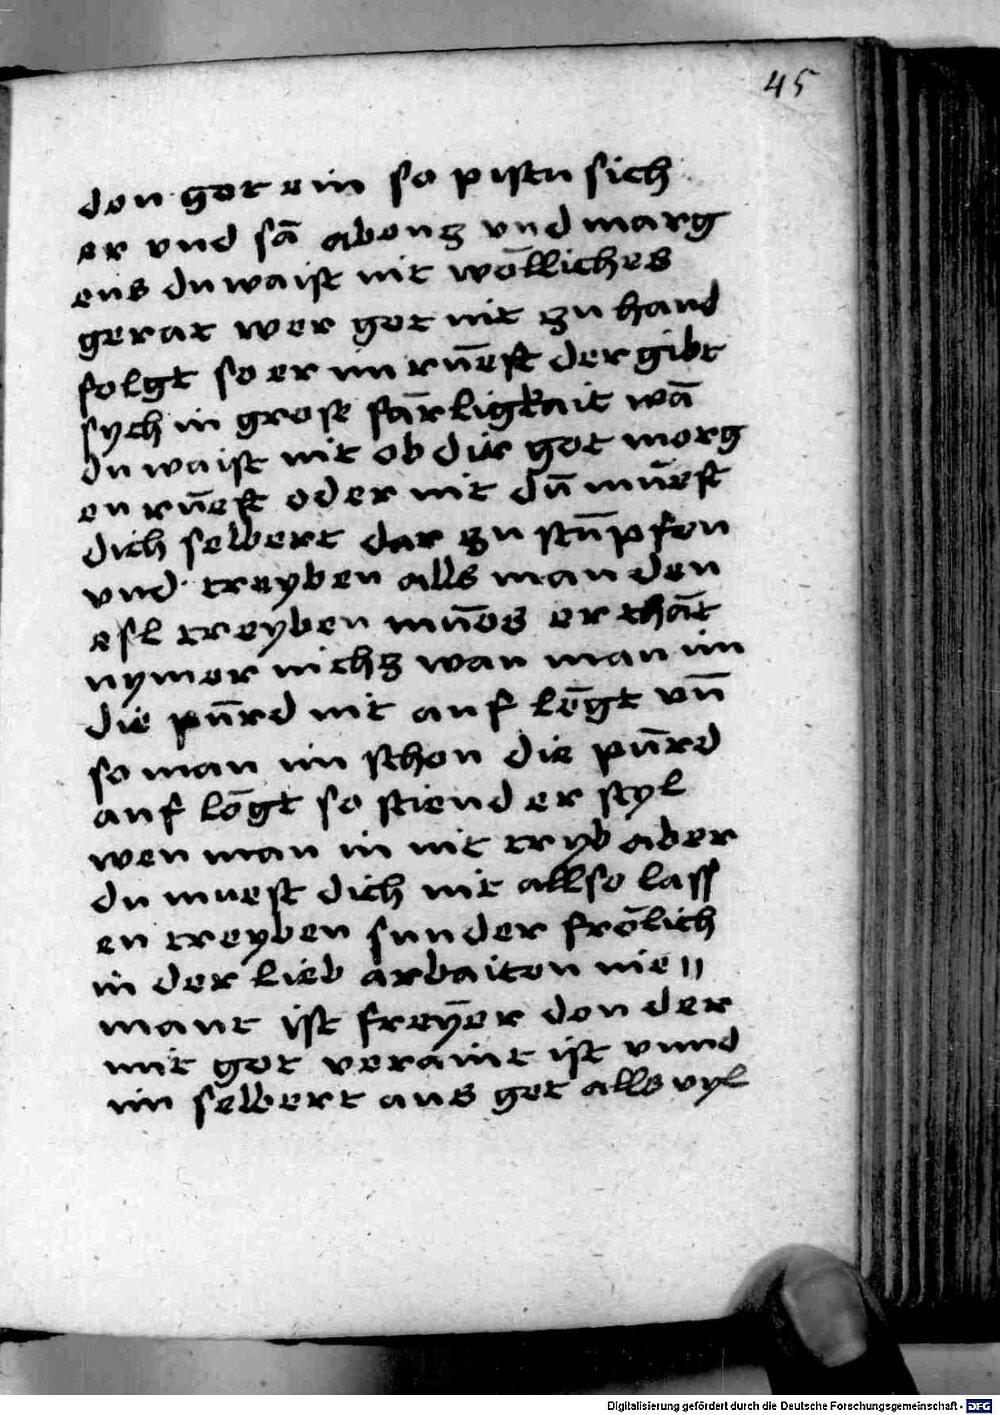 45
den got ein so pistu sich
er vnd sā abencz vnd marg
ens du waist nit wöllliches
gerat wer got nit zu hand
folgt so er im rüeft der gibt
sych in grose färligkait wā
du waist nit ob dir got morg
en rüeft oder nit dū müest
dich selbert dar zu stüpfen
vnd treyben alls man den
esl treyben müos er thät
nymer nichz wan man im
die pürd nit auf legt vn̄
so man im schon die pürd
auf lögt so stiend er styl
wen man in nit tryb aber
du muest dich nit allso lass
en treyben sunder frölich
in der lieb arbaiten nie〃
mant ist freyer den der
mit got veraint ist vnnd
im selbert aus get alls vyl
Digitalisierung gefördert durch die Deutsche Forschungsgemeinschaft - DFG